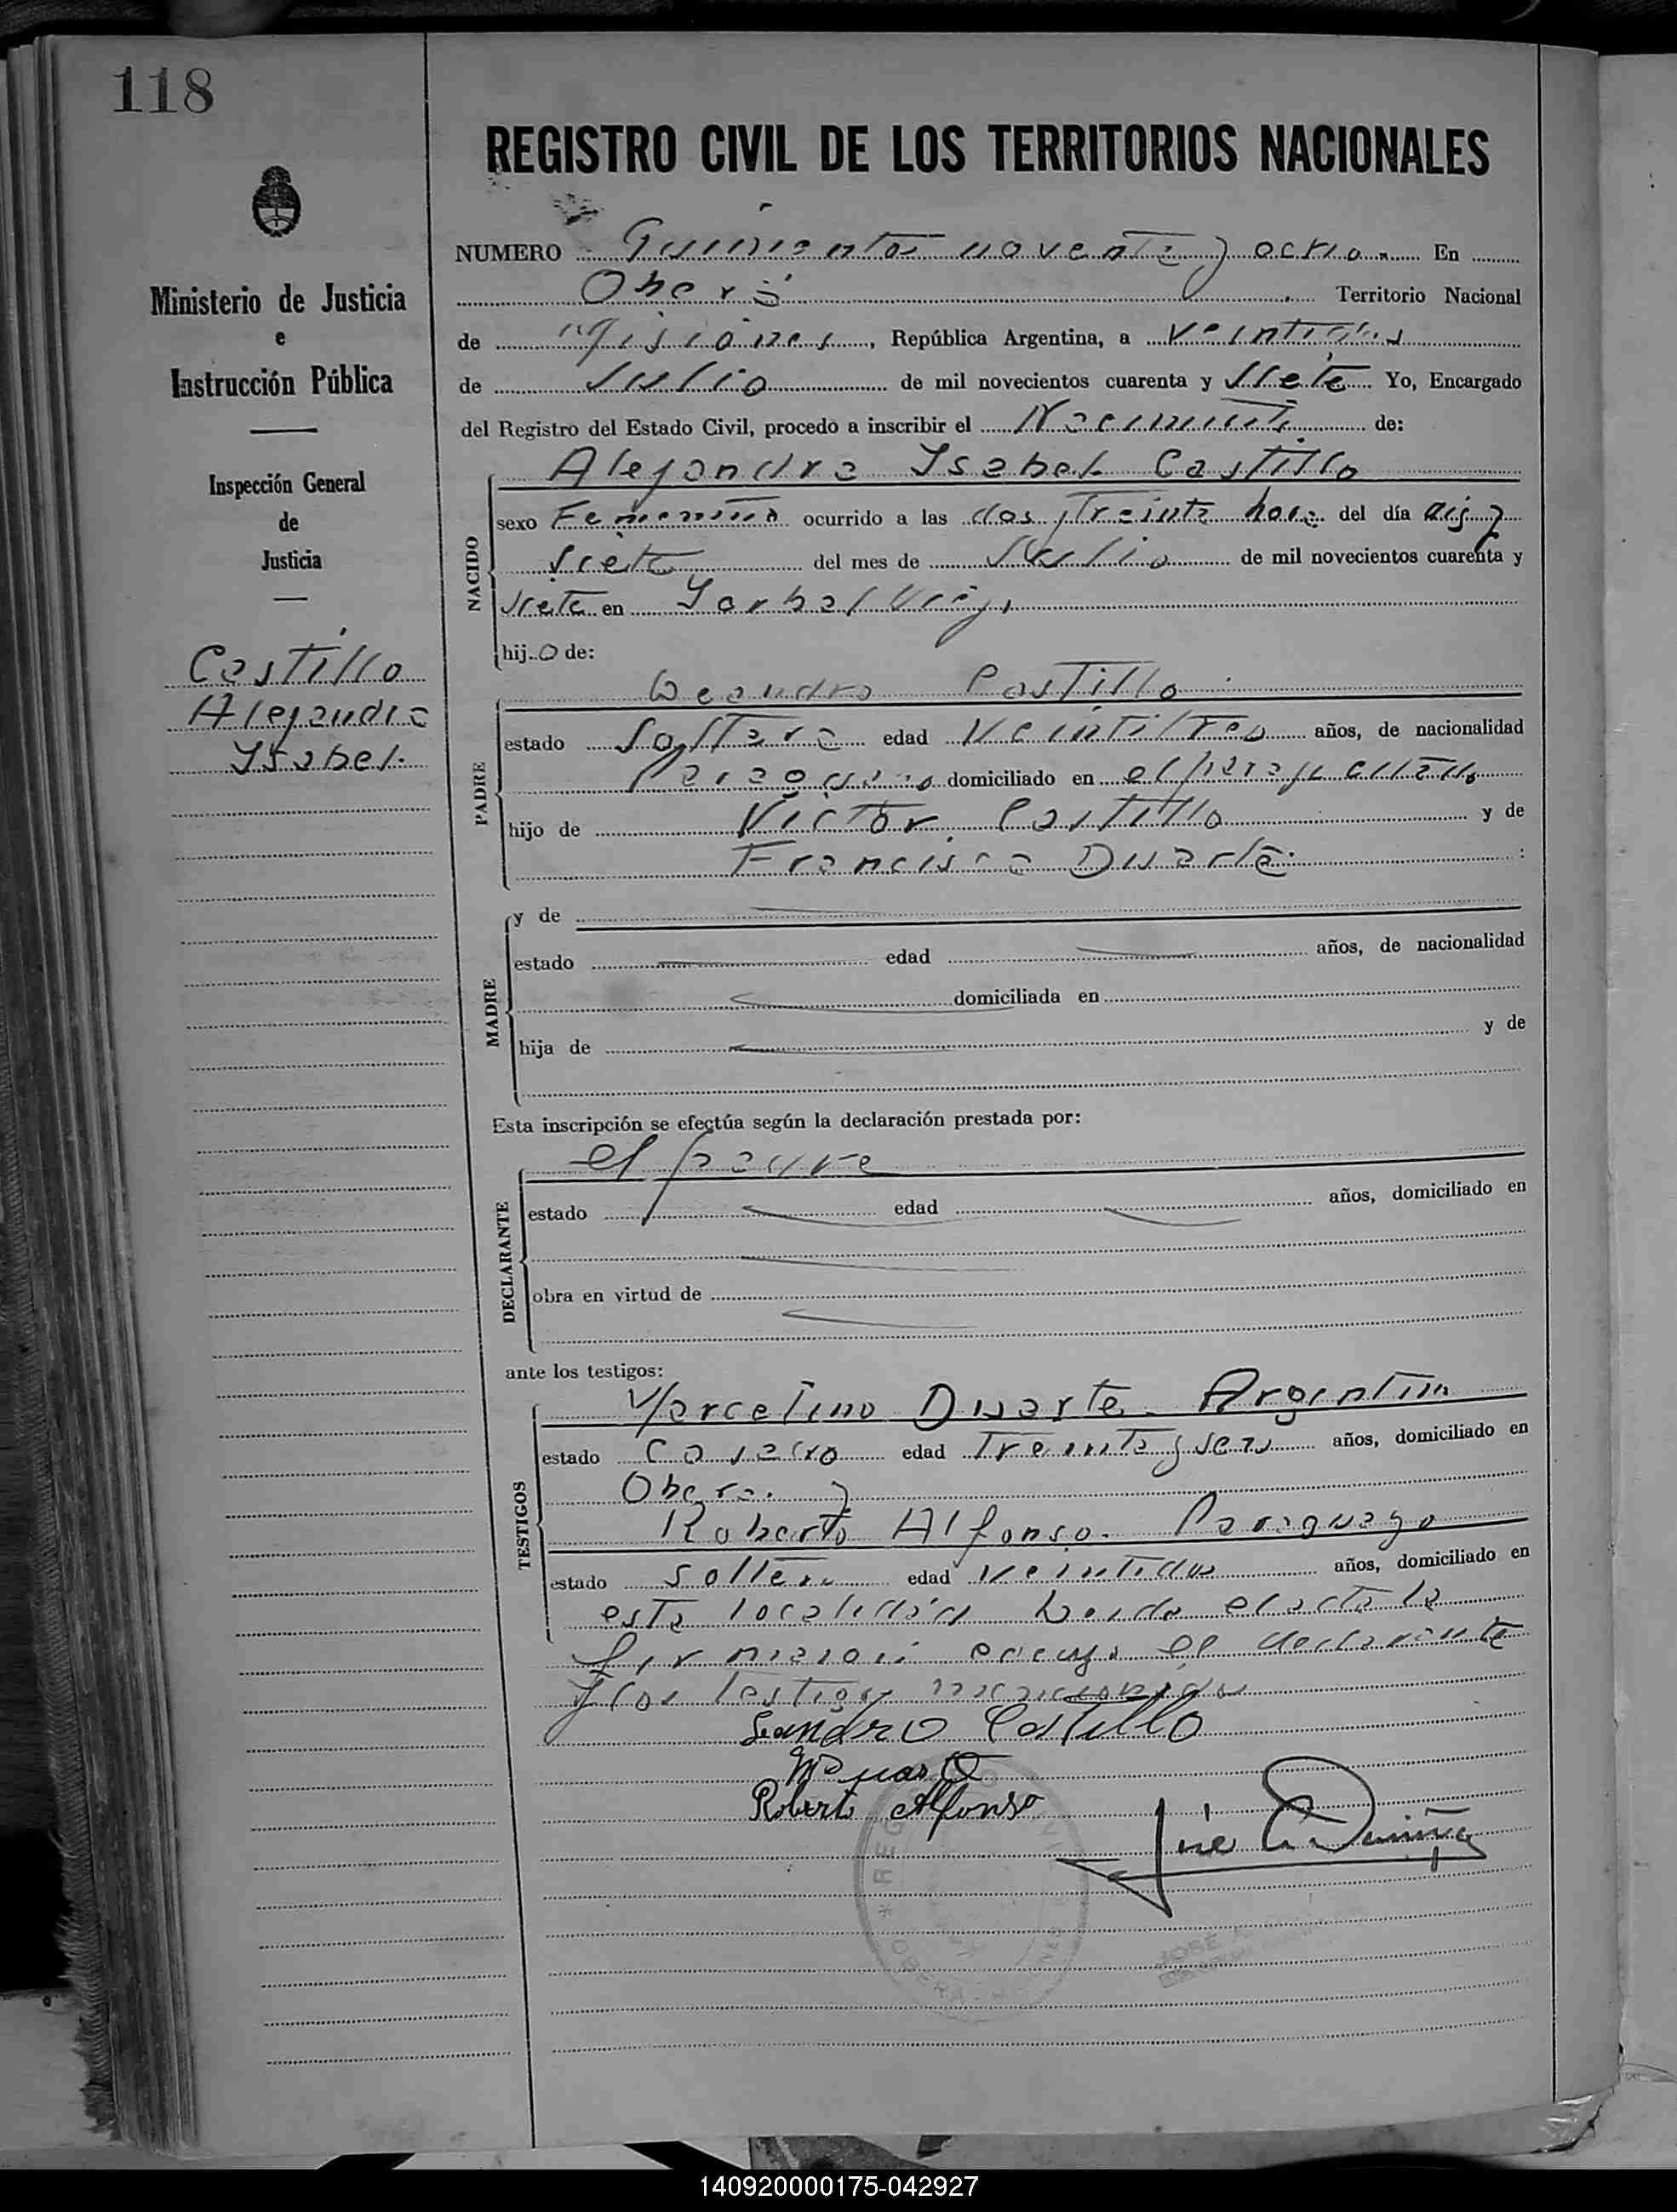 118
REGISTRO CIVIL DE LOS TERRITORIOS NACIONALES
Ministerio de Justicia
e
Instrucción Pública
Inspección General
de
Justicia
Castillo
Alejandra
Ysabel.
NUMERO Quinientos noventa y ocho.- En
Oberá Territorio Nacional
de Misiones, República Argentina, a veintidos
de Julio de mil novecientos cuarenta y siete Yo, Encargado
del Registro del Estado Civil, procedo a inscribir el Nacimiento de:
Alejandra Ysabel Castillo
NACIDO
sexo Femenino ocurrido a las dos y treinta hora del día diez y
siete del mes de Julio de mil novecientos cuarenta y
siete en Yerbal Viejo
hijo de:
Leandro Castillo
PADRE
estado Soltero edad Veintitres años, de nacionalidad
Paraguayo domiciliado en el paraje citado
hijo de Victor Castillo y de
Francisca Duarte.
MADRE
y de
estado edad años, de nacionalidad
domiciliada en
hija de y de
Esta inscripción se efectúa según la declaración prestada por:
el padre
DECLARANTE
estado edad años, domiciliado en
obra en virtud de
ante los testigos:
Marcelino Duarte. Argentino
TESTIGOS
estado Casado edad Treinta y seis años, domiciliado en
Obera. y
Roberto Alfonso. Paraguayo
estado soltero edad veintidos años, domiciliado en
esta localidad Leida el acta la
firmaron el declarante
y los testigos mencionados
Leandro Castillo
Roberto Alfonso
José
140920000175-042927